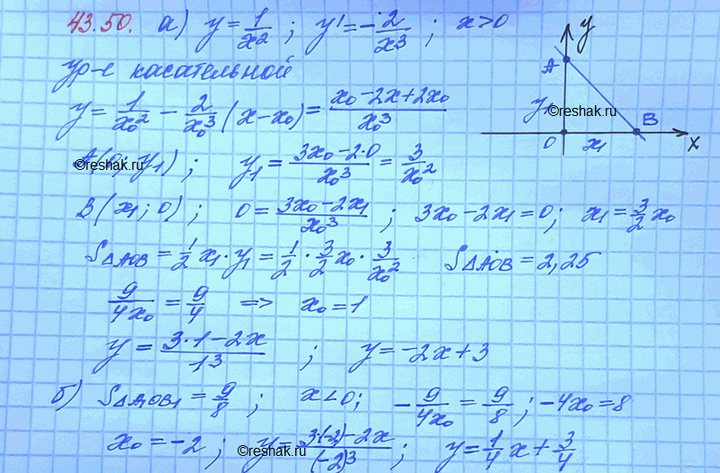 43.50. а) y = 1/x² ; y' = -2/x³ ; x>0
ур-е касательной
y = 1/x₀² - 2/x₀³ (x-x₀) = (x₀-2x+2x₀)/x₀³
A(0; y₁) ; y₁ = (3x₀-2·0)/x₀³ = 3/x₀²
B(x₁; 0) ; 0 = (3x₀-2x₁)/x₀³ ; 3x₀-2x₁=0; x₁ = 3/2 x₀
S△AOB = 1/2 x₁·y₁ = 1/2 · 3/2 x₀ · 3/x₀² S△AOB = 2,25
9/4x₀ = 9/4 => x₀=1
y = (3·1-2x)/1³ ; y=-2x+3
б) S△A₁OB₁ = 9/8 ; x<0; -9/4x₀ = 9/8 ; -4x₀=8
x₀=-2 ; y = (3·(-2)-2x)/(-2)³ ; y = 1/4 x + 3/4
y
A
y₁
O
x₁
B
x
©reshak.ru
©reshak.ru
©reshak.ru